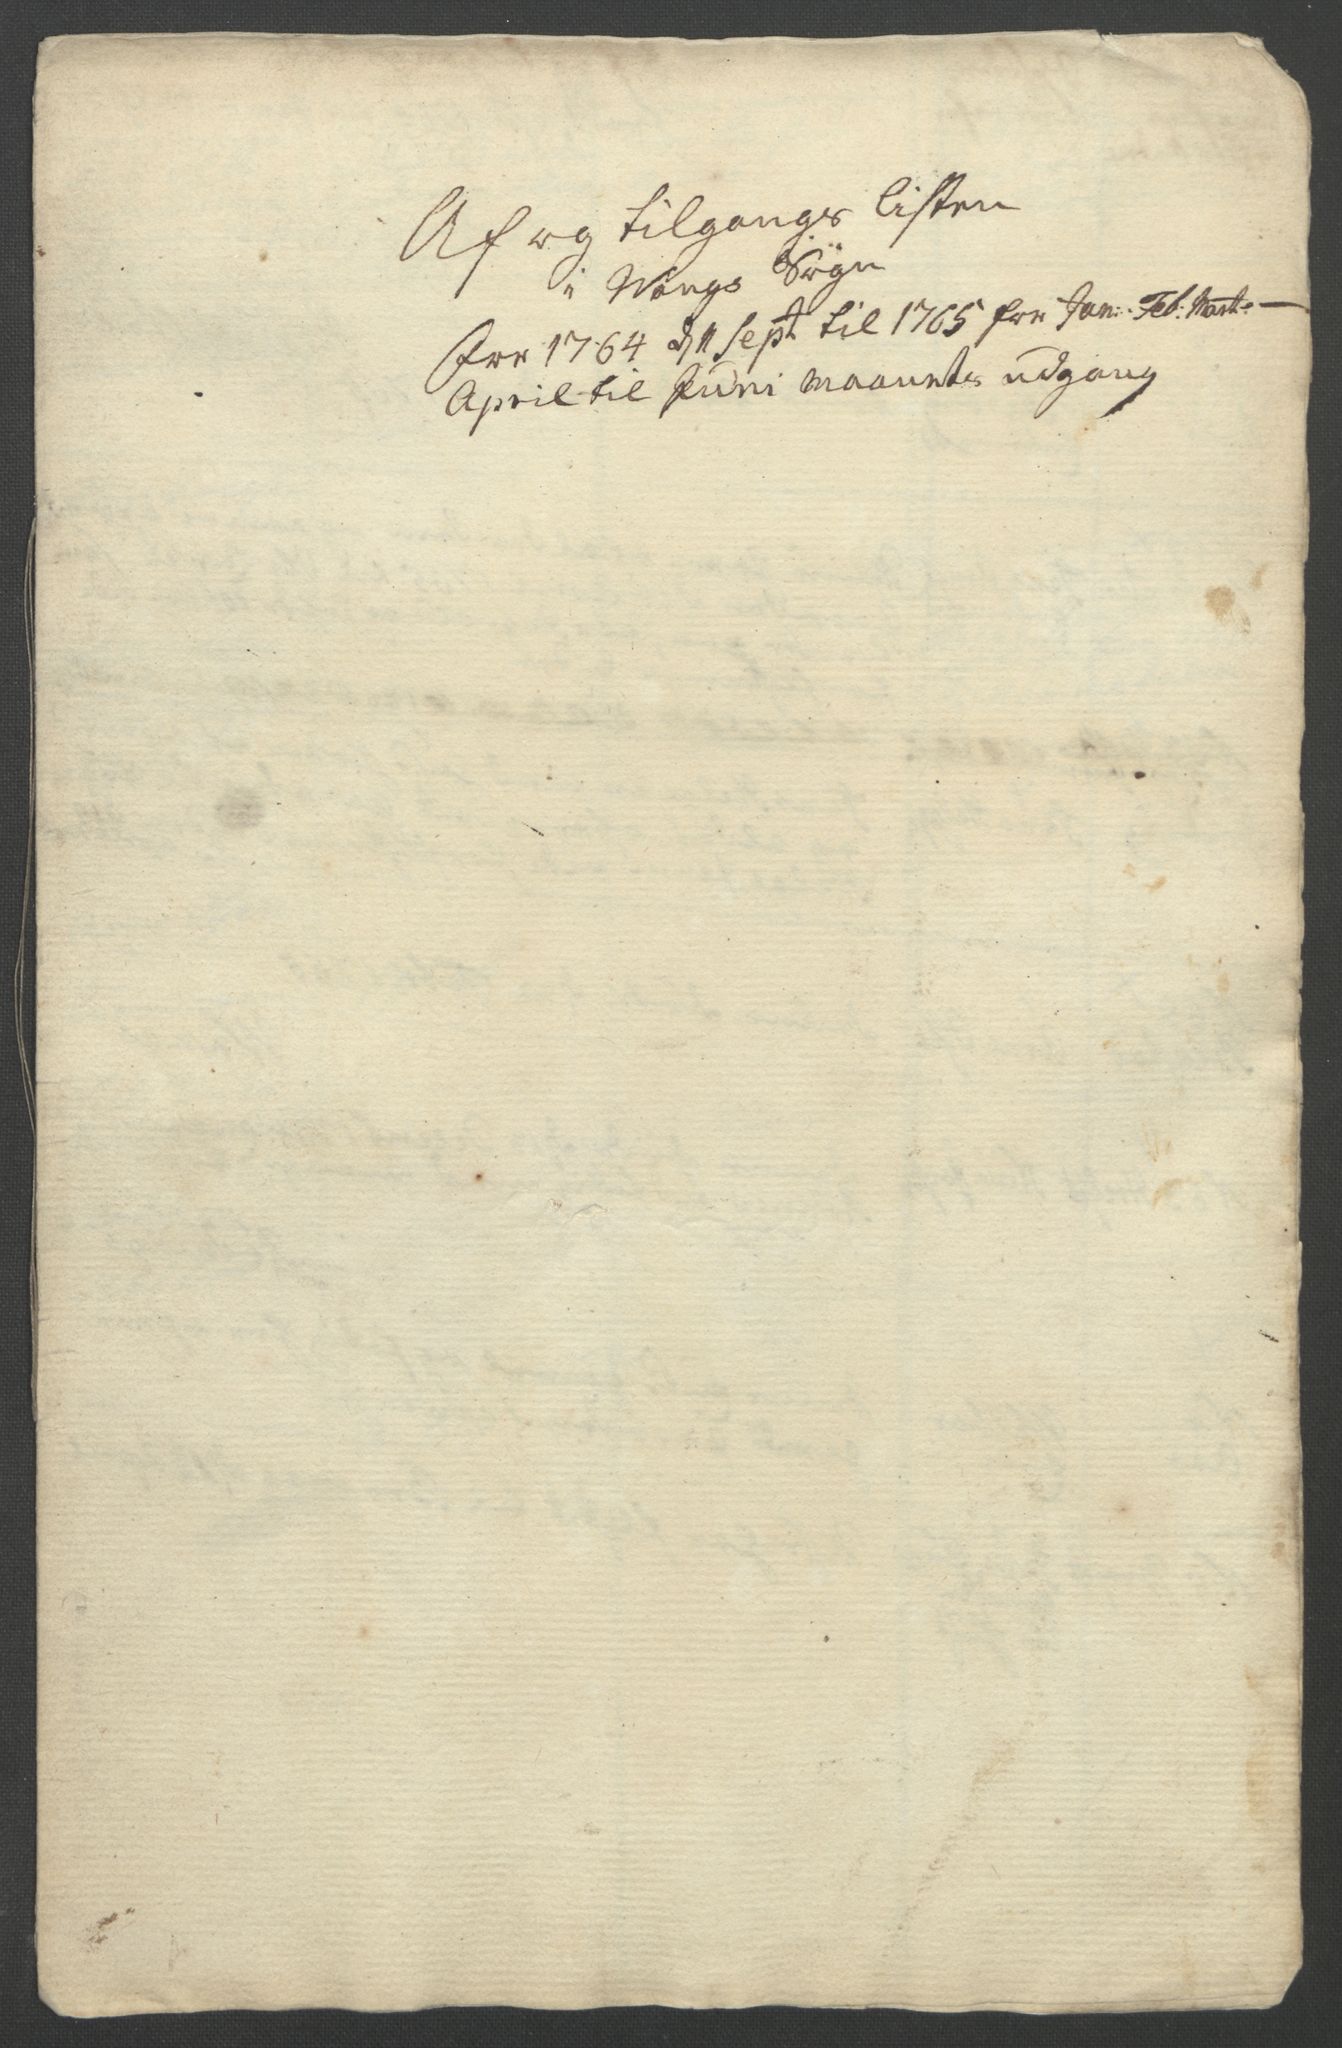 Af og tilgangs Listen
i Wangs Sogn
For 1764 d 11 Sept til 1765 for Jan: Feb: Marti
April til Juni Maanets udgang